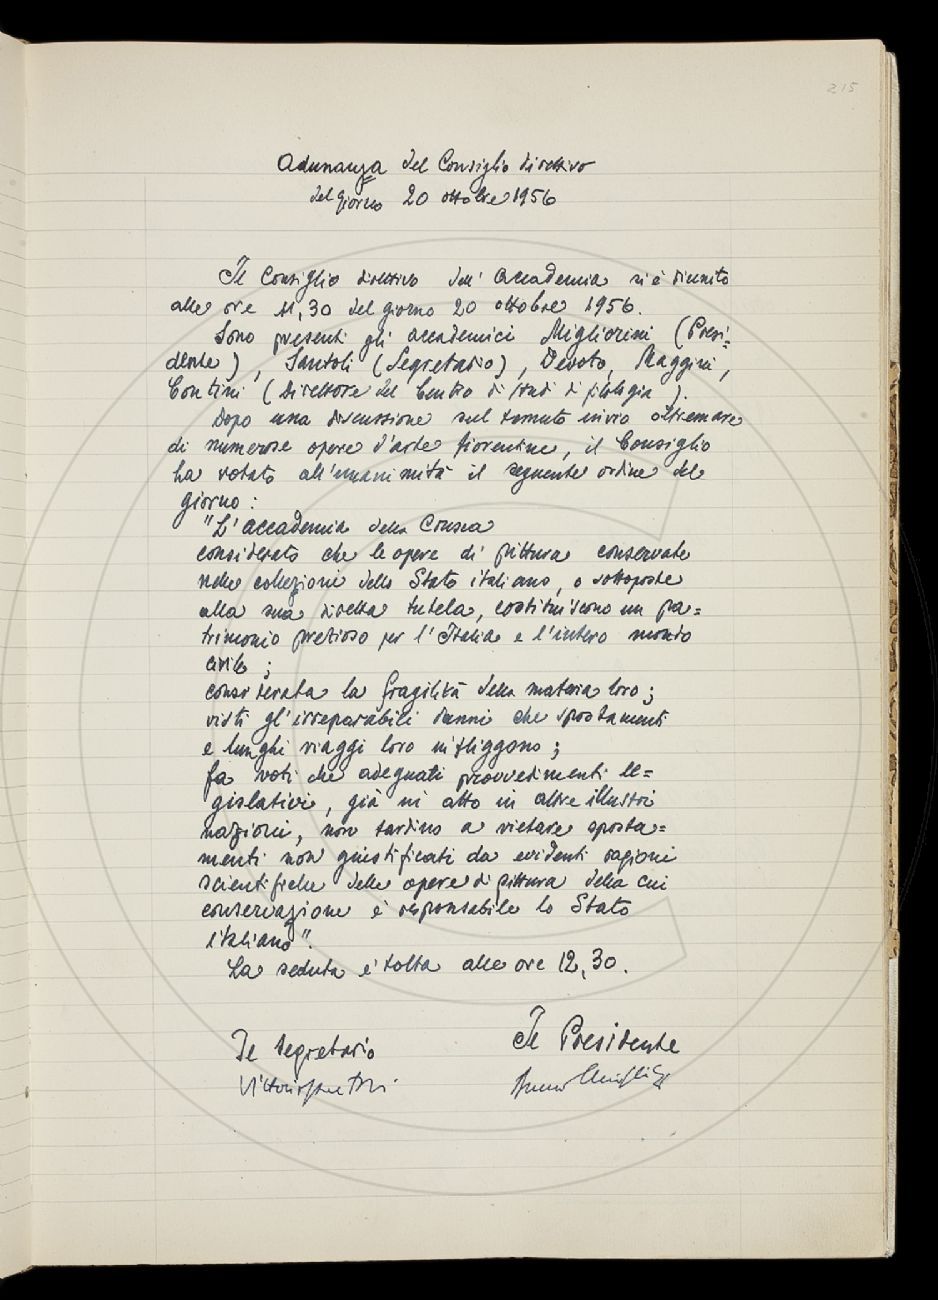 215
Adunanza del Consiglio direttivo
del giorno 20 ottobre 1956
Il Consiglio direttivo dell'Accademia si è riunito
alle ore 11,30 del giorno 20 ottobre 1956.
Sono presenti gli accademici Migliorini (Presi=
dente), Santoli (Segretario), Devoto, Maggini,
Contini (Direttore del Centro di studi di filologia).
Dopo una discussione sul temuto invio oltremare
di numerose opere d'arte fiorentine, il Consiglio
ha votato all'unanimità il seguente ordine del
giorno:
"L'Accademia della Crusca
considerato che le opere di pittura conservate
nelle collezioni dello Stato italiano, o sottoposte
alla sua diretta tutela, costituiscono un pa=
trimonio prezioso per l'Italia e l'intero mondo
civile;
considerata la fragilità della materia loro;
visti gl'irreparabili danni che spostamenti
e lunghi viaggi loro infliggono;
fa voti che adeguati provvedimenti le=
gislativi, già in atto in altre illustri
nazioni, non tardino a vietare sposta=
menti non giustificati da evidenti ragioni
scientifiche delle opere di pittura della cui
conservazione è responsabile lo Stato
italiano".
La seduta è tolta alle ore 12,30.
Il Segretario
Il Presidente
Vittorio Santoli
Bruno Migliorini